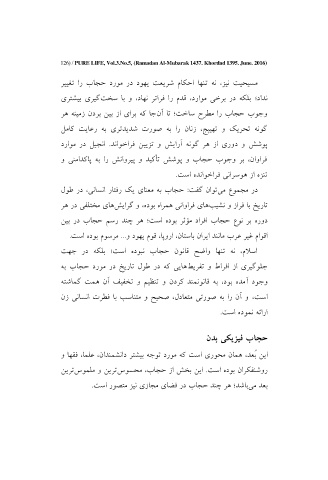 126) / PURE LIFE, Vol.3.No.5, (Ramadan Al-Mubarak 1437. Khordad 1395. June. 2016)
مسیحیت نیز، نه تنها احکام شریعت یهود در مورد حجاب را تغییر
نداد؛ بلکه در برخی موارد، قدم را فراتر نهاد، و با سخت‌گیری بیشتری
وجوب حجاب را مطرح ساخت؛ تا آن‌جا که برای از بین بردن زمینه هر
گونه تحریک و تهییج، زنان را به صورت شدیدتری به رعایت کامل
پوشش و دوری از هر گونه آرایش و تزیین فراخواند. انجیل در موارد
فراوان، بر وجوب حجاب و پوشش تأکید و پیروانش را به پاکدامنی و
تنزه از هوسرانی فراخوانده است.
در مجموع می‌توان گفت: حجاب به معنای یک رفتار انسانی، در طول
تاریخ با فراز و نشیب‌های فراوانی همراه بوده، و گرایش‌های مختلفی در هر
دوره بر نوع حجاب افراد مؤثر بوده است؛ هر چند رسم حجاب در بین
اقوام غیر عرب مانند ایران باستان، اروپا، قوم یهود و... مرسوم بوده است.
اسلام، نه تنها واضح قانون حجاب نبوده است؛ بلکه در جهت
جلوگیری از افراط و تفریط‌هایی که در طول تاریخ در مورد حجاب به
وجود آمده بود، به قانونمند کردن و تنظیم و تخفیف آن همت گماشته
است، و آن را به صورتی متعادل، صحیح و متناسب با فطرت انسانی زن
ارائه نموده است.
حجاب فیزیکی بدن
این بُعد، همان محوری است که مورد توجه بیشتر دانشمندان، علما، فقها و
روشنفکران بوده است. این بخش از حجاب، محسوس‌ترین و ملموس‌ترین
بعد می‌باشد؛ هر چند حجاب در فضای مجازی نیز متصور است.